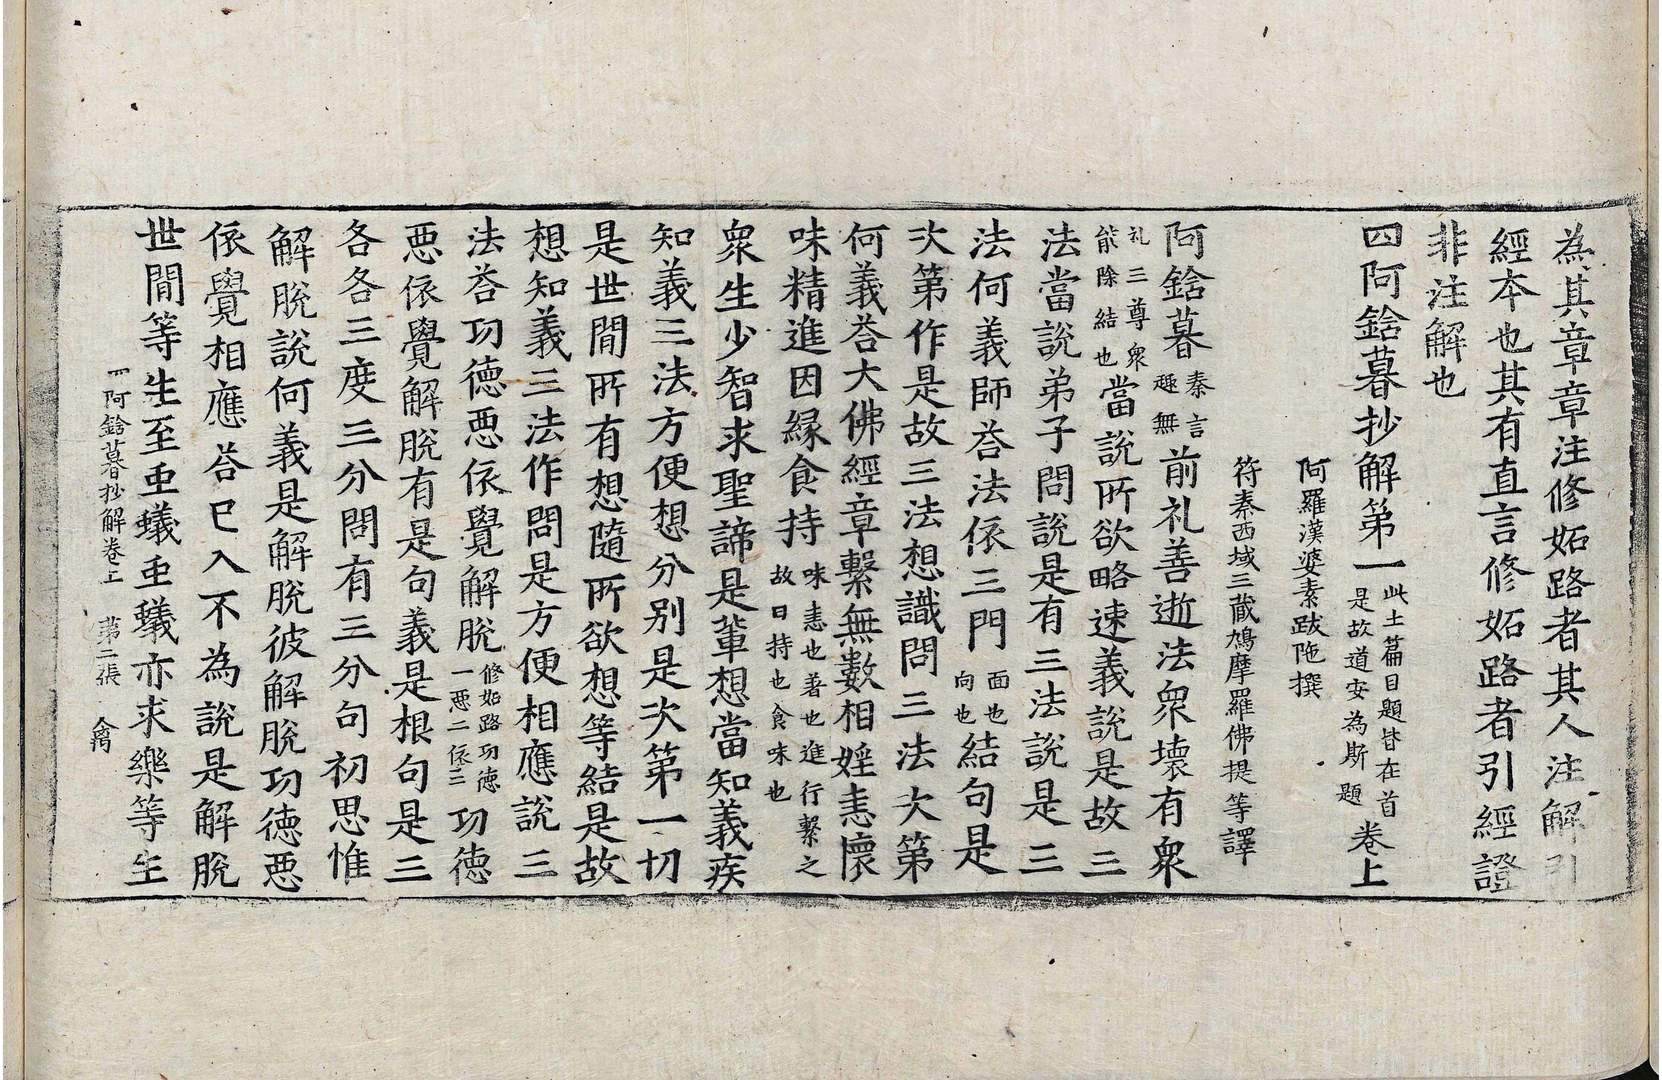 為其章章注修妬路者其人注解引
經本也其有直言修妬路者引經證
非注解也
四阿鋡暮抄解第一此土篇目題皆在首是故道安為斯題卷上
阿羅漢婆素跋陁撰
符秦西域三藏鳩摩羅佛提等譯
阿鋡暮秦言趣無前礼善逝法衆壞有衆
礼三尊衆能除結也當說所欲略速義說是故三
法當說弟子問說是有三法說是三
法何義師荅法依三門面也向也結句是
次第作是故三法想識問三法次第
何義荅大佛經章繫無數相婬恚懷
味精進因緣食持味恚也著也進行繫之故曰持也食味也
衆生少智求聖諦是輩想當知義疾
知義三法方便想分別是次第一切
是世間所有想隨所欲想等結是故
想知義三法作問是方便相應說三
法荅功德惡依覺解脫修妬路功德一惡二依三功德
惡依覺解脫有是句義是根句是三
各各三度三分問有三分句初思惟
解脫說何義是解脫彼解脫功德惡
依覺相應荅已入不為說是解脫
世間等生至虫蟻虫蟻亦求樂等生
四阿鋡暮抄解卷上 第二張 禽